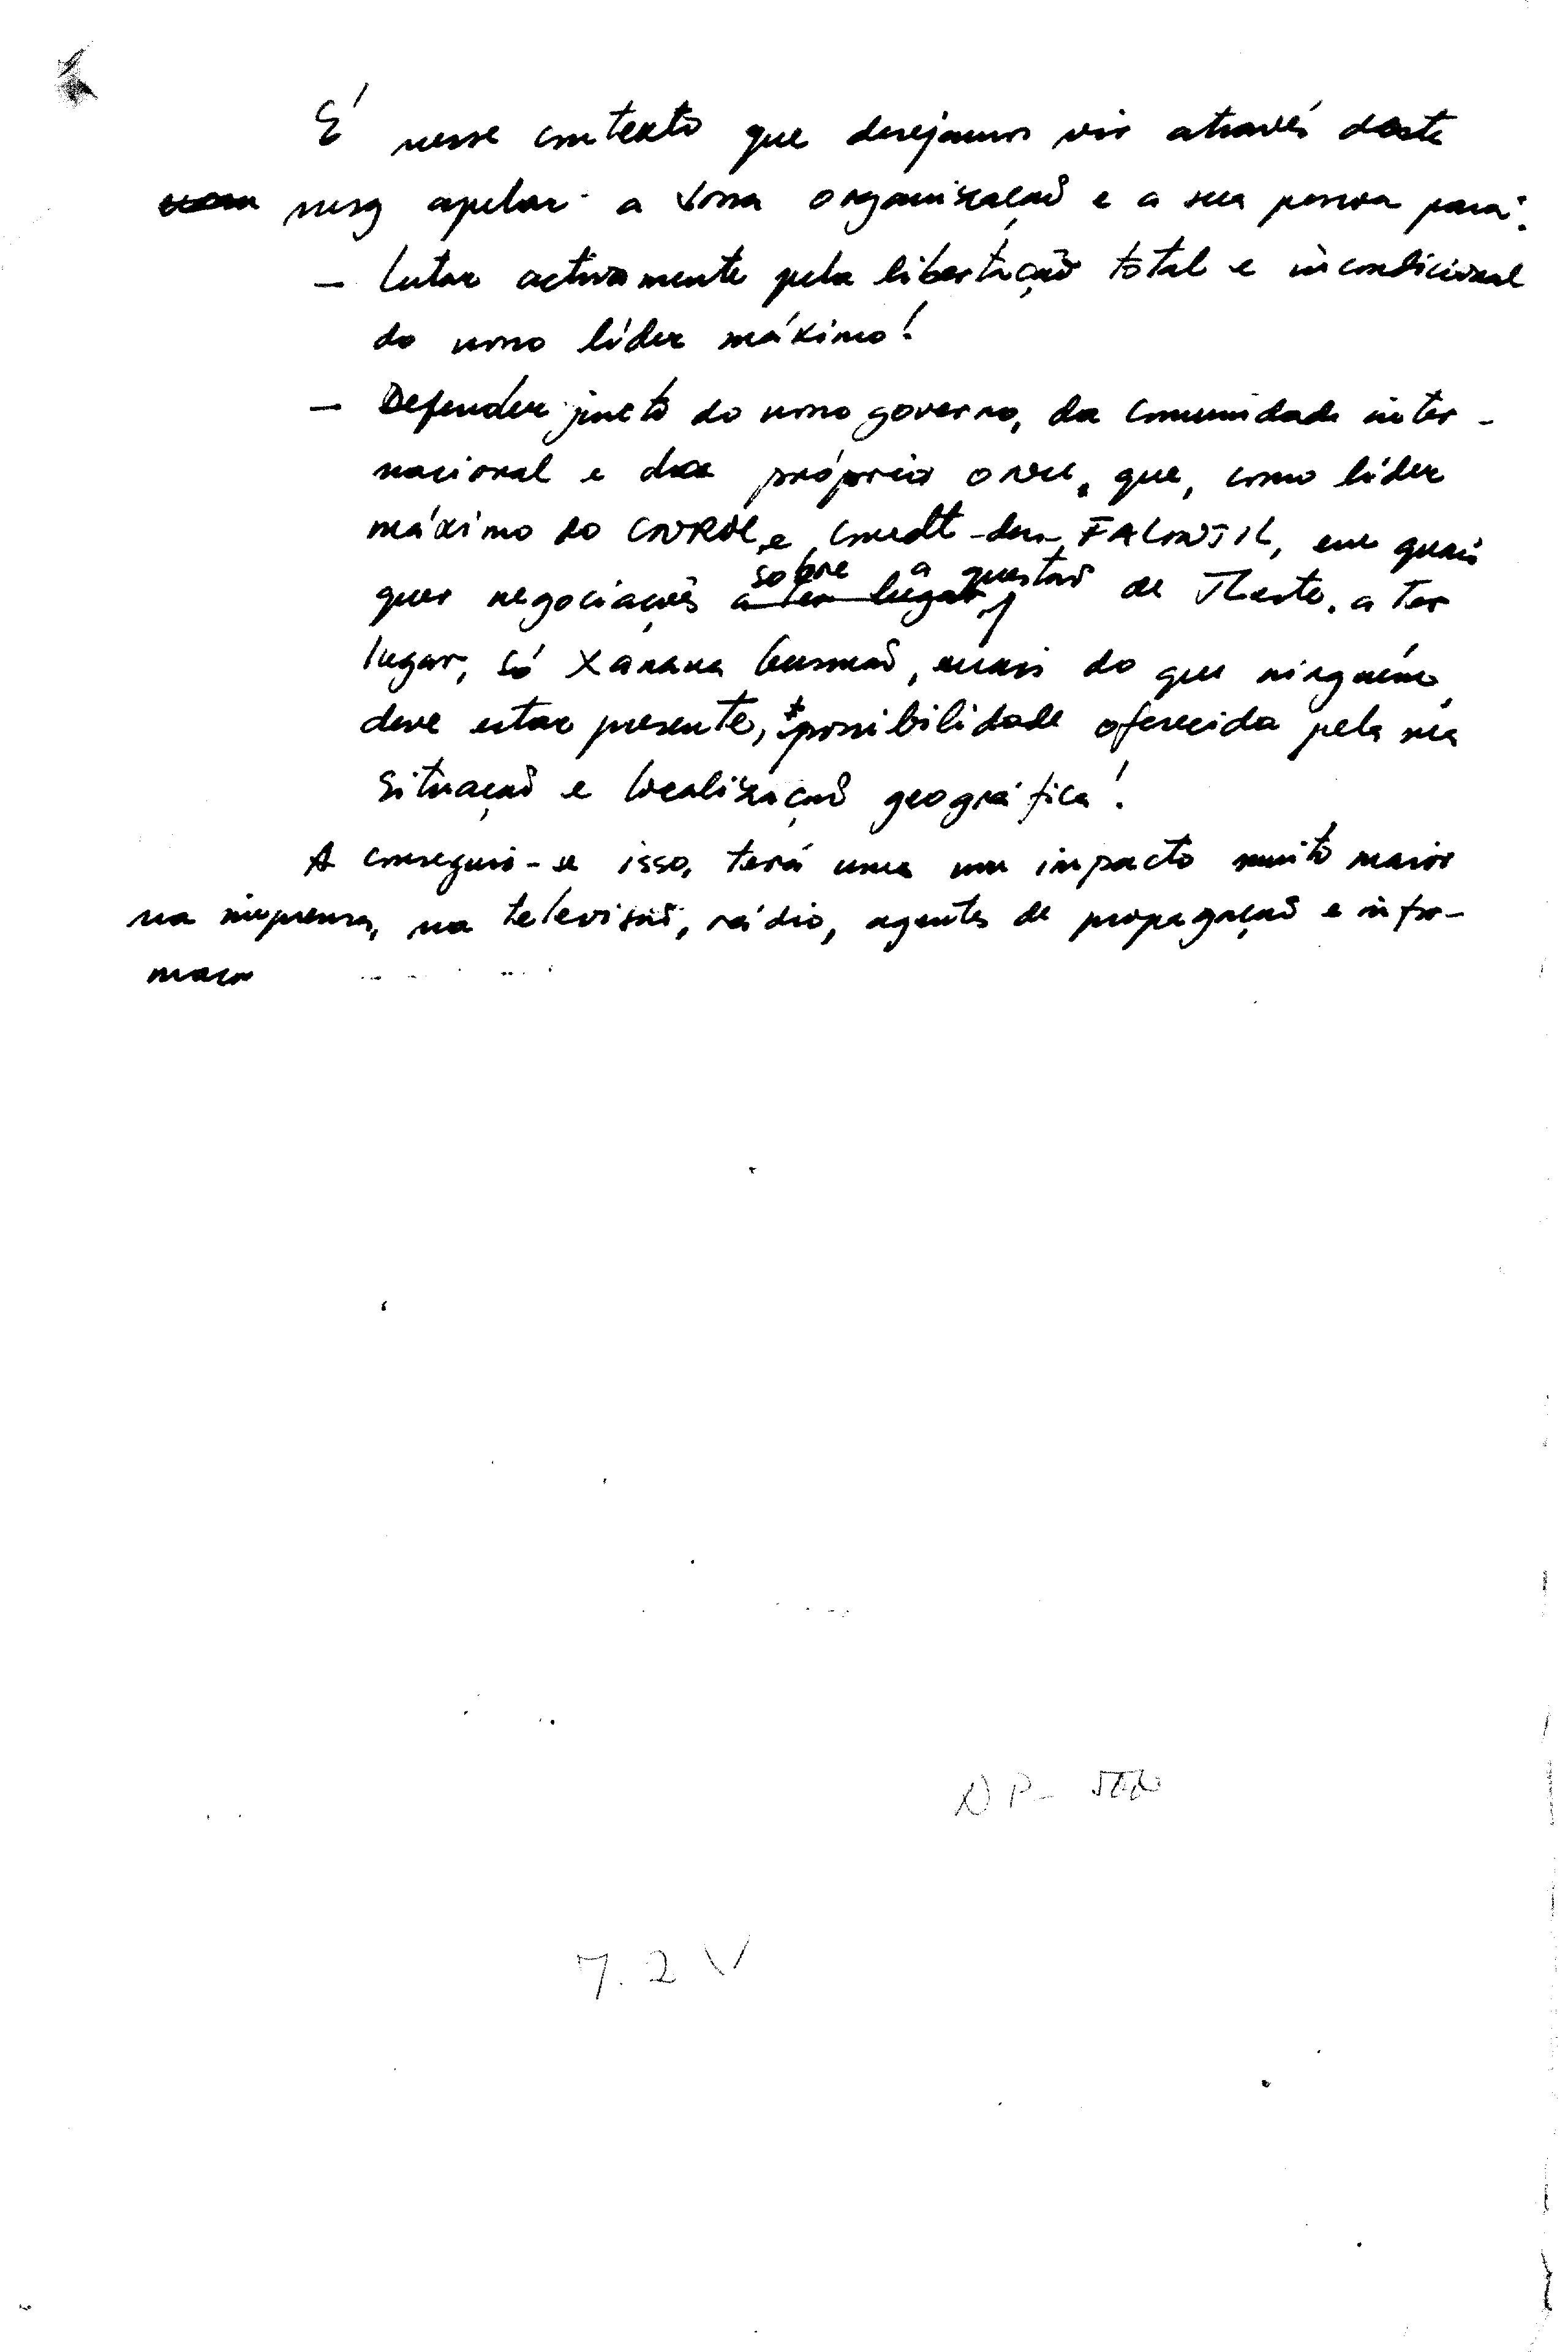 É nesse contexto que desejamos vir através deste
msg apelar a Vossa organização e a sua pessoa para:
- Lutar activamente pela libertação total e incondicional
do nosso líder máximo!
- Defender junto do nosso governo, da comunidade inter-
nacional e da própria ONU, que, como líder
máximo do CNRM e Cmdt - das FALINTIL, em quais
quer negociações a ter lugar sobre a questão de TLeste, a ter
lugar, só Xanana Gusmão, mais do que ninguém,
deve estar presente, possibilidade oferecida pela sua
situação e localização geográfica!
A conseguir-se isso, terá uma um impacto muito maior
na imprensa, na televisão, rádio, agentes de propagação e infor-
maço
NP-
7.2V